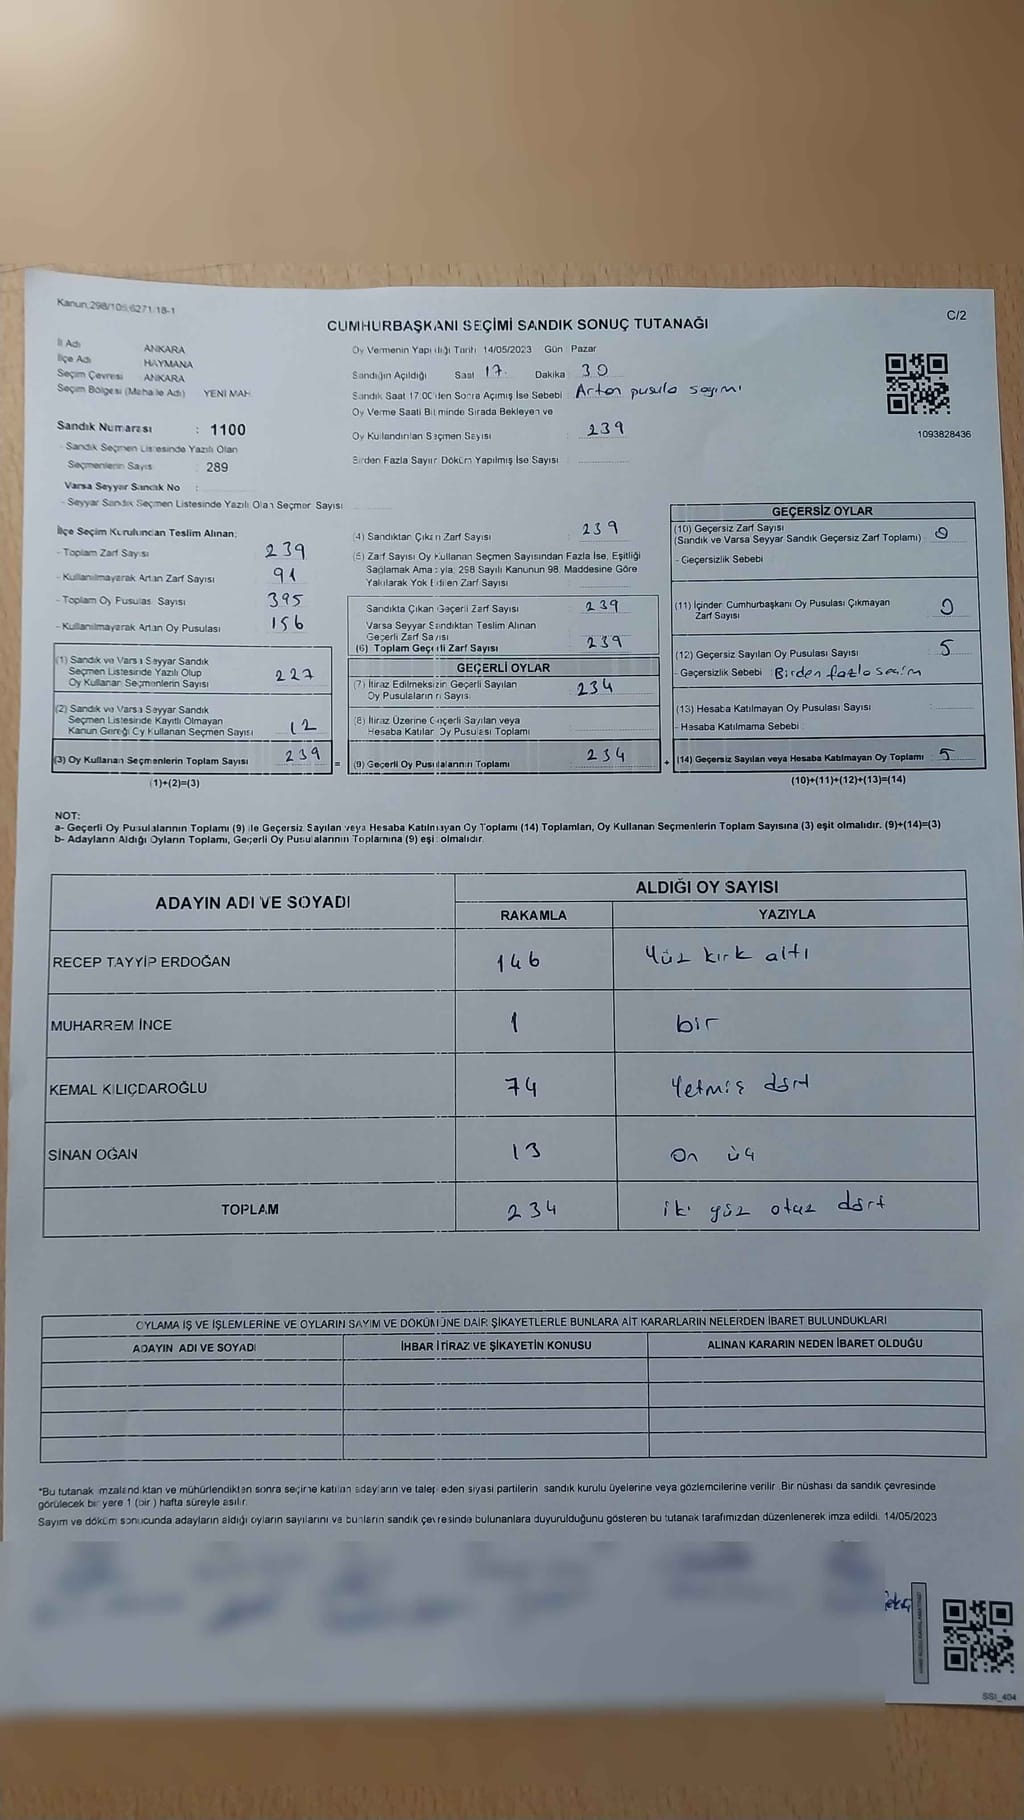 Kanun;298/105,6271/18-1
C/2
CUMHURBAŞKANI SEÇİMİ SANDIK SONUÇ TUTANAĞI
İl Adı ANKARA
İlçe Adı HAYMANA
Seçim Çevresi ANKARA
Seçim Bölgesi (Mahalle Adı) YENİ MAH
Oy Vermenin Yapıldığı Tarih 14/05/2023 Gün Pazar
Sandığın Açıldığı Saat 17. Dakika 30
Sandık Saat 17:00'den Sonra Açımış İse Sebebi Artan pusula sayımı
Oy Verme Saati Bitiminde Sırada Bekleyen ve
Oy Kullandırılan Seçmen Sayısı : 239
Birden Fazla Sayım Döküm Yapılmış İse Sayısı :
1093828436
Sandık Numarası : 1100
- Sandık Seçmen Listesinde Yazılı Olan
Seçmenlerin Sayısı : 289
Varsa Seyyar Sandık No :
- Seyyar Sandık Seçmen Listesinde Yazılı Olan Seçmen Sayısı
İlçe Seçim Kurulundan Teslim Alınan:
- Toplam Zarf Sayısı 239
- Kullanılmayarak Artan Zarf Sayısı 91
- Toplam Oy Pusulası Sayısı 395
- Kullanılmayarak Artan Oy Pusulası 156
(1) Sandık ve Varsa Seyyar Sandık
Seçmen Listesinde Yazılı Olup
Oy Kullanan Seçmenlerin Sayısı 227
(2) Sandık ve Varsa Seyyar Sandık
Seçmen Listesinde Kayıtlı Olmayan
Kanun Gereği Oy Kullanan Seçmen Sayısı 12
(3) Oy Kullanan Seçmenlerin Toplam Sayısı 239 =
(1)+(2)=(3)
(4) Sandıktan Çıkan Zarf Sayısı : 239
(5) Zarf Sayısı Oy Kullanan Seçmen Sayısından Fazla İse, Eşitliği
Sağlamak Amacıyla, 298 Sayılı Kanunun 98. Maddesine Göre
Yakılarak Yok Edilen Zarf Sayısı :
Sandıkta Çıkan Geçerli Zarf Sayısı : 239
Varsa Seyyar Sandıktan Teslim Alınan
Geçerli Zarf Sayısı
(6) Toplam Geçerli Zarf Sayısı : 239
GEÇERLİ OYLAR
(7) İtiraz Edilmeksizin Geçerli Sayılan
Oy Pusulalarının Sayısı : 234
(8) İtiraz Üzerine Geçerli Sayılan veya
Hesaba Katılan Oy Pusulası Toplamı :
(9) Geçerli Oy Pusulalarının Toplamı : 234 +
GEÇERSİZ OYLAR
(10) Geçersiz Zarf Sayısı
(Sandık ve Varsa Seyyar Sandık Geçersiz Zarf Toplamı) : 0
- Geçersizlik Sebebi :
(11) İçinden Cumhurbaşkanı Oy Pusulası Çıkmayan
Zarf Sayısı : 0
(12) Geçersiz Sayılan Oy Pusulası Sayısı : 5
- Geçersizlik Sebebi Birden fazla seçim
(13) Hesaba Katılmayan Oy Pusulası Sayısı :
- Hesaba Katılmama Sebebi :
(14) Geçersiz Sayılan veya Hesaba Katılmayan Oy Toplamı : 5
(10)+(11)+(12)+(13)=(14)
NOT:
a- Geçerli Oy Pusulalarının Toplamı (9) ile Geçersiz Sayılan veya Hesaba Katılmayan Oy Toplamı (14) Toplamları, Oy Kullanan Seçmenlerin Toplam Sayısına (3) eşit olmalıdır. (9)+(14)=(3)
b- Adayların Aldığı Oyların Toplamı, Geçerli Oy Pusulalarının Toplamına (9) eşit olmalıdır.
ADAYIN ADI VE SOYADI ALDIĞI OY SAYISI
RAKAMLA YAZIYLA
RECEP TAYYİP ERDOĞAN 146 Yüz kırk altı
MUHARREM İNCE 1 bir
KEMAL KILIÇDAROĞLU 74 Yetmiş dört
SİNAN OĞAN 13 On üç
TOPLAM 234 iki yüz otuz dört
OYLAMA İŞ VE İŞLEMLERİNE VE OYLARIN SAYIM VE DÖKÜMÜNE DAİR ŞİKAYETLERLE BUNLARA AİT KARARLARIN NELERDEN İBARET BULUNDUKLARI
ADAYIN ADI VE SOYADI İHBAR İTİRAZ VE ŞİKAYETİN KONUSU ALINAN KARARIN NEDEN İBARET OLDUĞU
*Bu tutanak imzalandıktan ve mühürlendikten sonra seçime katılan adayların ve talep eden siyasi partilerin sandık kurulu üyelerine veya gözlemcilerine verilir. Bir nüshası da sandık çevresinde
görülecek bir yere 1 (bir) hafta süreyle asılır.
Sayım ve döküm sonucunda adayların aldığı oyların sayılarını ve bunların sandık çevresinde bulunanlara duyurulduğunu gösteren bu tutanak tarafımızdan düzenlenerek imza edildi. 14/05/2023
SSI_404